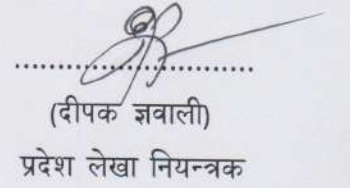 ....................................
(दीपक ज्ञवाली)
प्रदेश लेखा नियन्त्रक